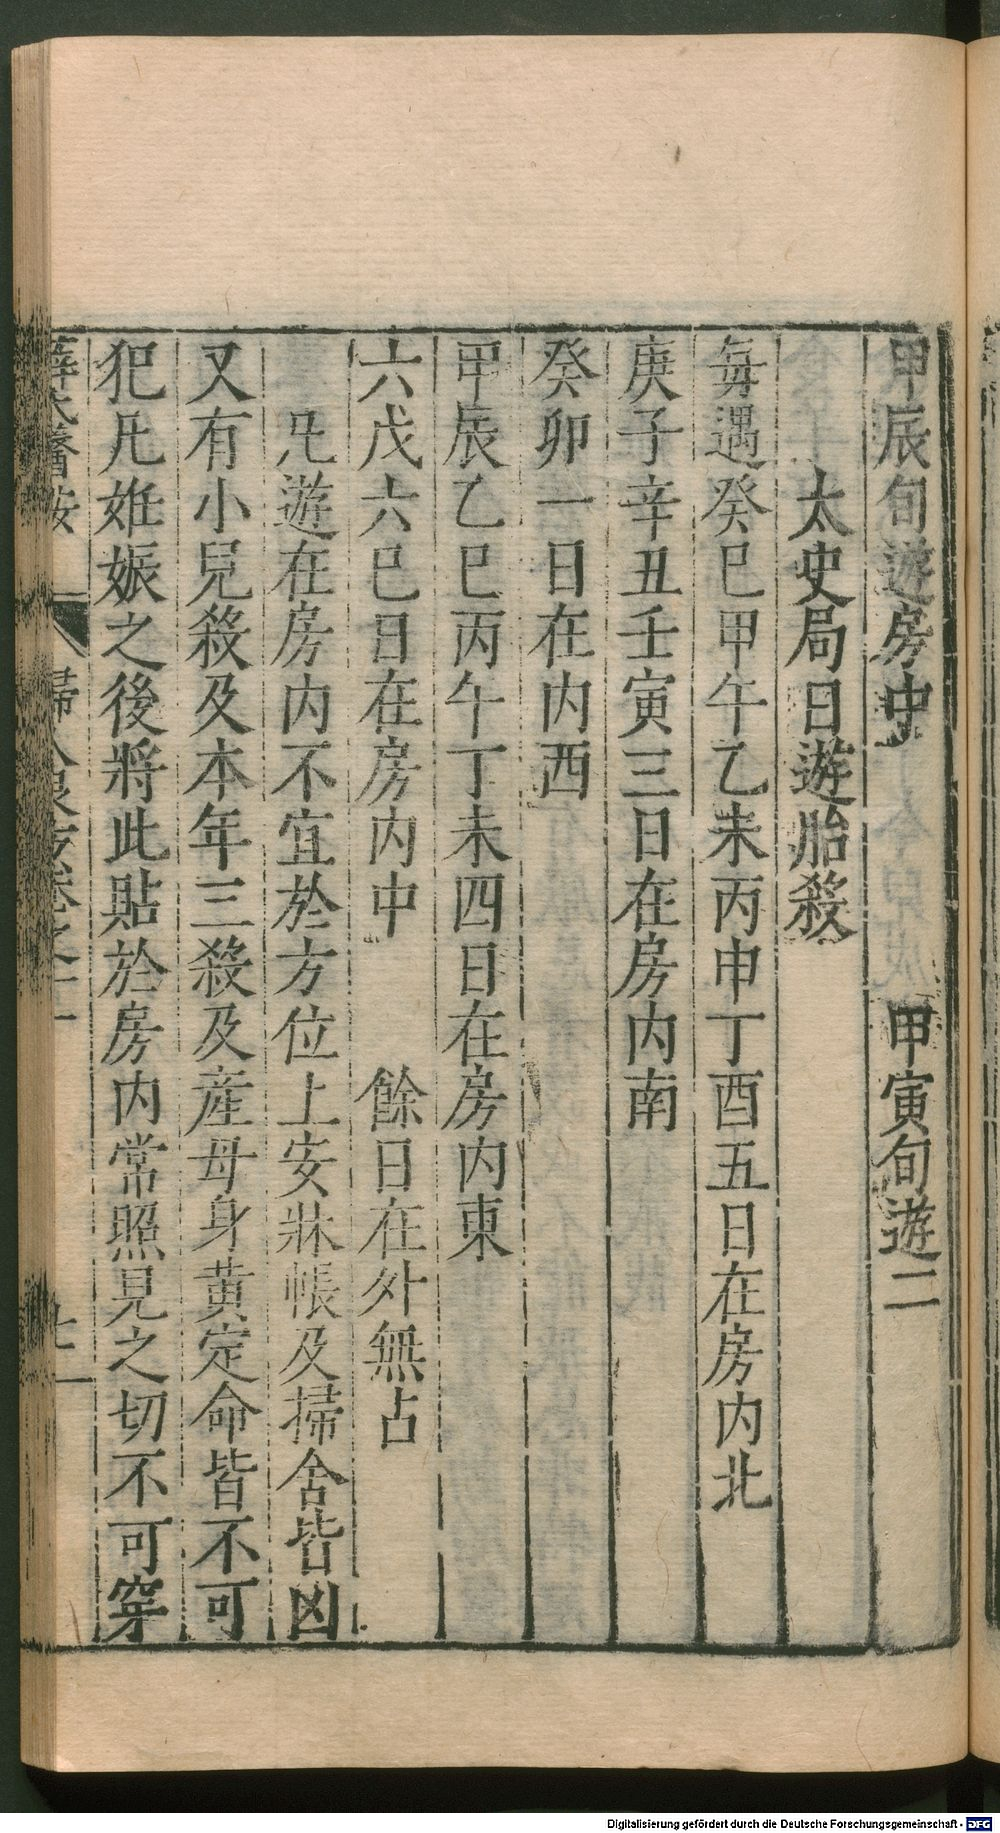 甲辰旬遊房中　甲寅旬遊二
太史局日遊胎殺
每遇癸巳甲午乙未丙申丁酉五日在房内北
庚子辛丑壬寅三日在房内南
癸卯一日在内西
甲辰乙巳丙午丁未四日在房内東
六戊六巳日在房内中　餘日在外無占
凡遊在房内不宜於方位上安牀帳及掃舍皆凶
又有小兒殺及本年三殺及產母身黄定命皆不可
犯凡姙娠之後將此貼於房内常照見之切不可穿
薛氏醫按　婦人良方卷之十一
Digitalisierung gefördert durch die Deutsche Forschungsgemeinschaft - DFG